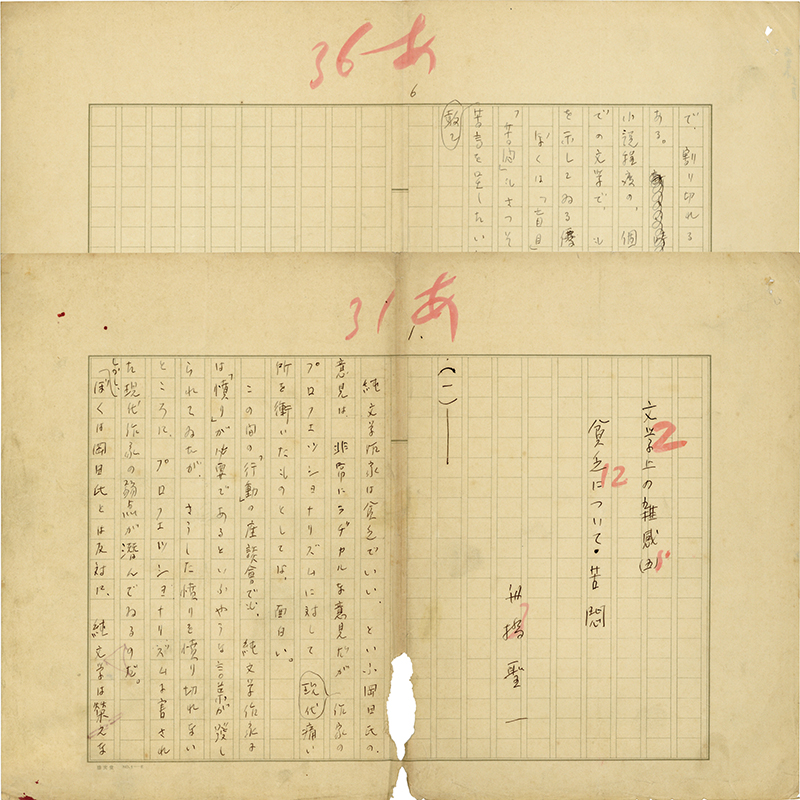 36 あ
6
で、割り切れる
ある。
小説程度の、個
での文学で、も
を示してゐる
ぼくは「盲目」
「苦悶」
苦言を呈したい
31 あ
1.
文学上の雑感(五)
2
貧乏について・苦悶
12
舟橋聖一
(一)——
純文学作家は貧乏でいい、といふ岡田氏の、
意見は、非常にラヂカルな意見だが、作家の
プロフエツシヨナリズムに対して現代痛い
所を衝いたものとしては、面白い。
この間の「行動」の座談會でも、純文学作家に
は「憤り」が必要であるといふやうな言葉が発し
られてゐたが、さうした憤りを憤り切れない
ところに、プロフエツシヨナリズムに害され
た現代作家の弱点が潜んでゐるのだ。
しかし、ぼくは岡田氏とは反対に、純文学は栄えな